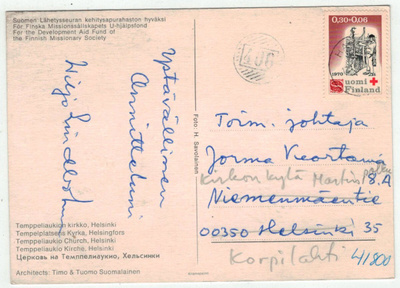 Suomen Lähetysseuran kehitysapurahaston hyväksi
För Finska Missionssällskapets U-hjälpsfond
For the Development Aid Fund of
the Finnish Missionary Society
Ystävällinen
Onnitteluni
Temppeliaukion kirkko, Helsinki
Tempelplatsens Kyrka, Helsingfors
Temppeliaukio Church, Helsinki
Temppeliaukio Kirche, Helsinki
Церковь на Темппелиаукио, Хельсинки
Architects: Timo & Tuomo Suomalainen
Foto: H. Savolainen
0,30+0,06
1970
Suomi
Finland
Toim. johtaja
Jorma
Kirkon kylä Martin
Niemenmäentie 8.A
00350 Helsinki 35
Korpilahti 41800